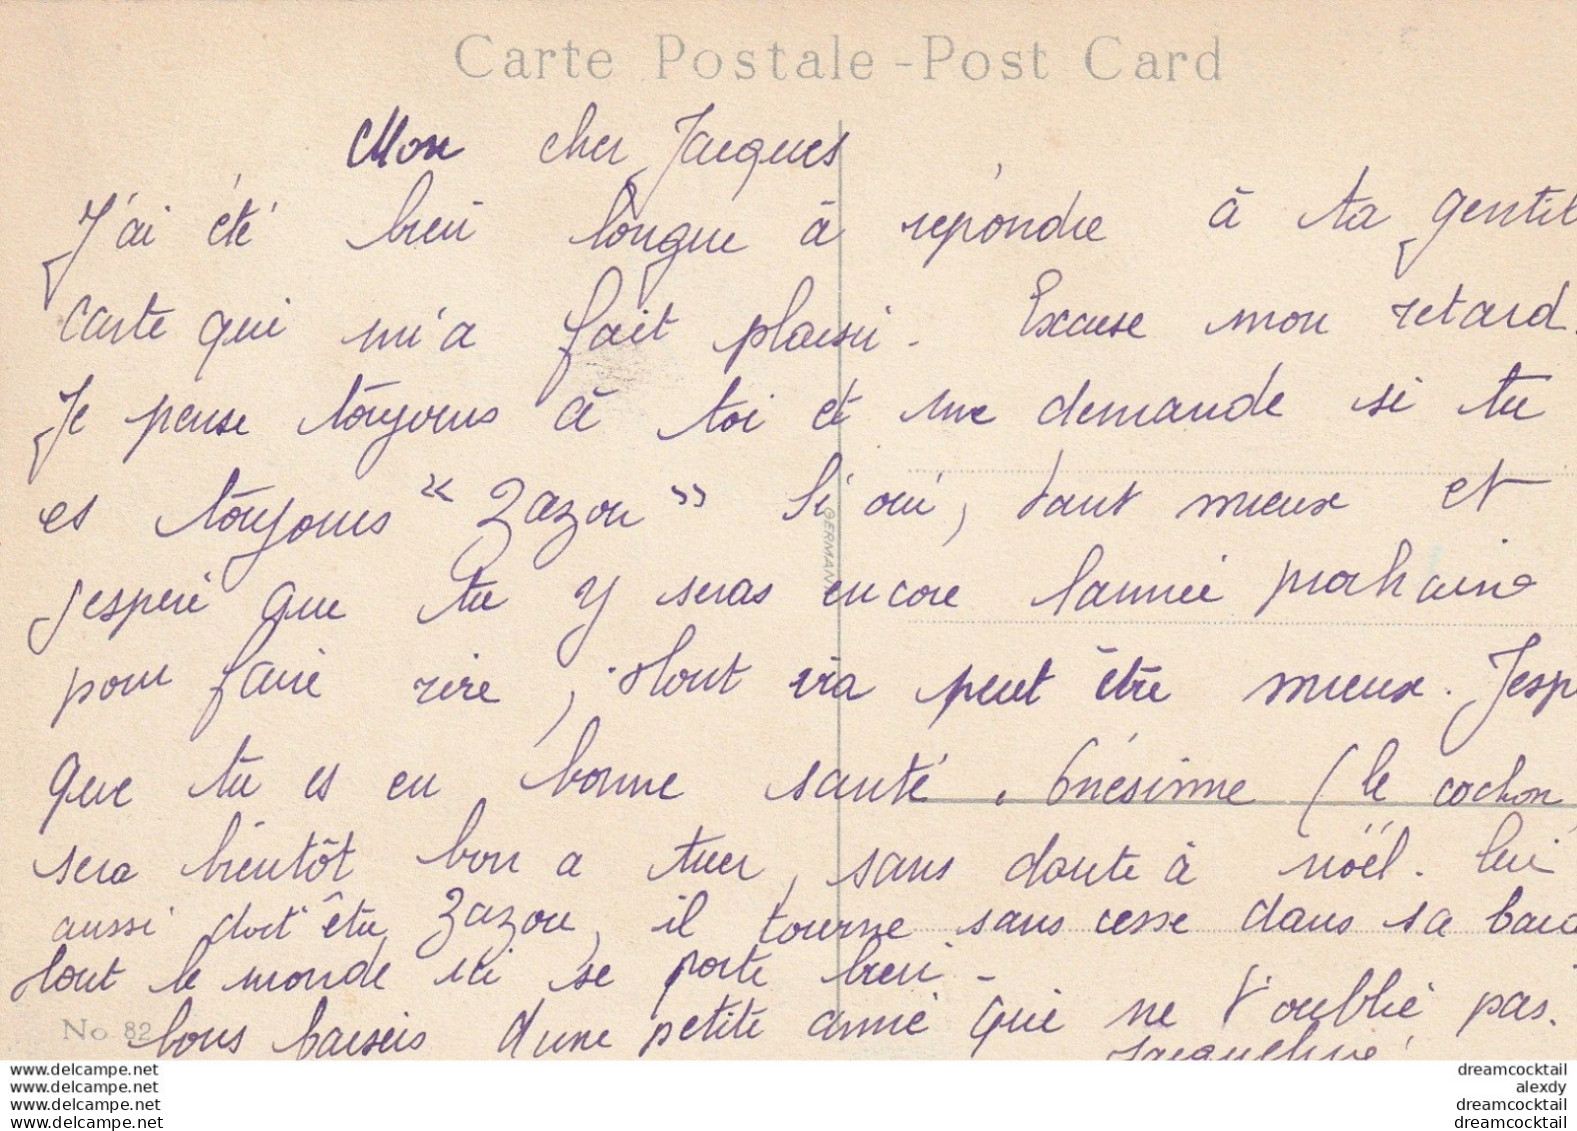 Carte Postale - Post Card
Mon cher Jacques
J'ai été bien longue à répondre à ta gentil
carte qui m'a fait plaisir. Excuse mon retard.
Je pense toujours à toi et me demande si tu
es toujours "Zazou" Si oui, tant mieux et
j'espère que tu y seras encore l'année prochaine
pour faire rire, tout ira peut être mieux. J'esp
que tu es en bonne santé. Onésime (le cochon
sera bientôt bon a tuer, sans doute à noël. lui
aussi doit être Zazou, il tourne sans cesse dans sa
tout le monde ici se porte bien -
bons baisers d'une petite amie qui ne t'oublie pas.
Jacqueline
GERMAN
No 82
www.delcampe.net
www.delcampe.net
www.delcampe.net
www.delcampe.net
dreamcocktail
alexdy
dreamcocktail
dreamcocktail